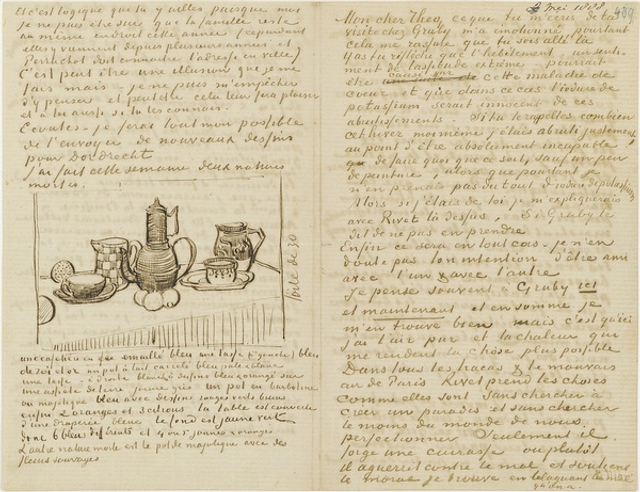 Et c'est logique que tu y ailles puisque moi
je ne puis être sûr que la famille reste
au même endroit cette année (cependant
elles y viennent depuis plusieurs années et
Perruchot doit connaître l'adresse en ville)
C'est peut être une illusion que je me
fais mais – je ne puis m'empêcher
d'y penser et peutetre cela leur fera plaisir
et à toi aussi si tu les connais.
Ecoutes – je ferai tout mon possible
de t'envoyer de nouveaux dessins
pour Dordrecht
j'ai fait cette semaine deux natures
mortes.
toile de 30
une cafetière en fer émaillé bleu une tasse (à gauche) bleu
de roi et or un pot à lait carrelé bleu pale et blanc
une tasse – à droite blanche à dessins bleu & orangé sur
une assiette de terre jaune gris un pot en barbotine
ou majolique bleu avec dessins rouges verts bruns
enfin 2 oranges et 3 citrons la table est couverte
d'une draperie bleue, le fond est jaune vert
donc 6 bleus différents et 4 ou 5 jaunes & orangés
L'autre nature morte est le pot de majolique avec des
fleurs sauvages
Mei 1888
489
Mon cher Theo, ce que tu m'écris de ta
visite chez Gruby m'a emotionné pourtant
cela me rassure que tu sois allé là
As tu réfléchi que l'hébètement – un senti-
ment de lassitude extrême – pourrait
être causé par cette maladie de
coeur et que dans ce cas l'iodure de
potassium serait innocent de ces
abrutissements. Si tu te rappelles combien
cet hiver moi même j'étais abruti justement
au point d'être absolument incapable
de faire quoi que ce soit, sauf un peu
de peinture, alors que pourtant je
n'en prenais pas du tout d'iodure de potassium
Alors si j'étais de toi je m'expliquerais
avec Rivet là dessus, Si Gruby te
dit de ne pas en prendre
Enfin ce sera en tout cas – je n'en
doute pas ton intention d'être ami
avec l'un & avec l'autre
Je pense souvent à Gruby ici
et maintenant et en somme je
m'en trouve bien mais c'est qu'ici
j'ai l'air pur et la chaleur qui
me rendent la chose plus possible
Dans tous les tracas & le mauvais
air de Paris Rivet prend les choses
comme elles sont sans chercher à
créer un paradis et sans chercher
le moins du monde de nous
perfectionner Seulement il
forge une cuirasse ou plutôt
il aguerrit contre le mal et soutient
le moral je trouve en blaguant le mal
qu'on a.